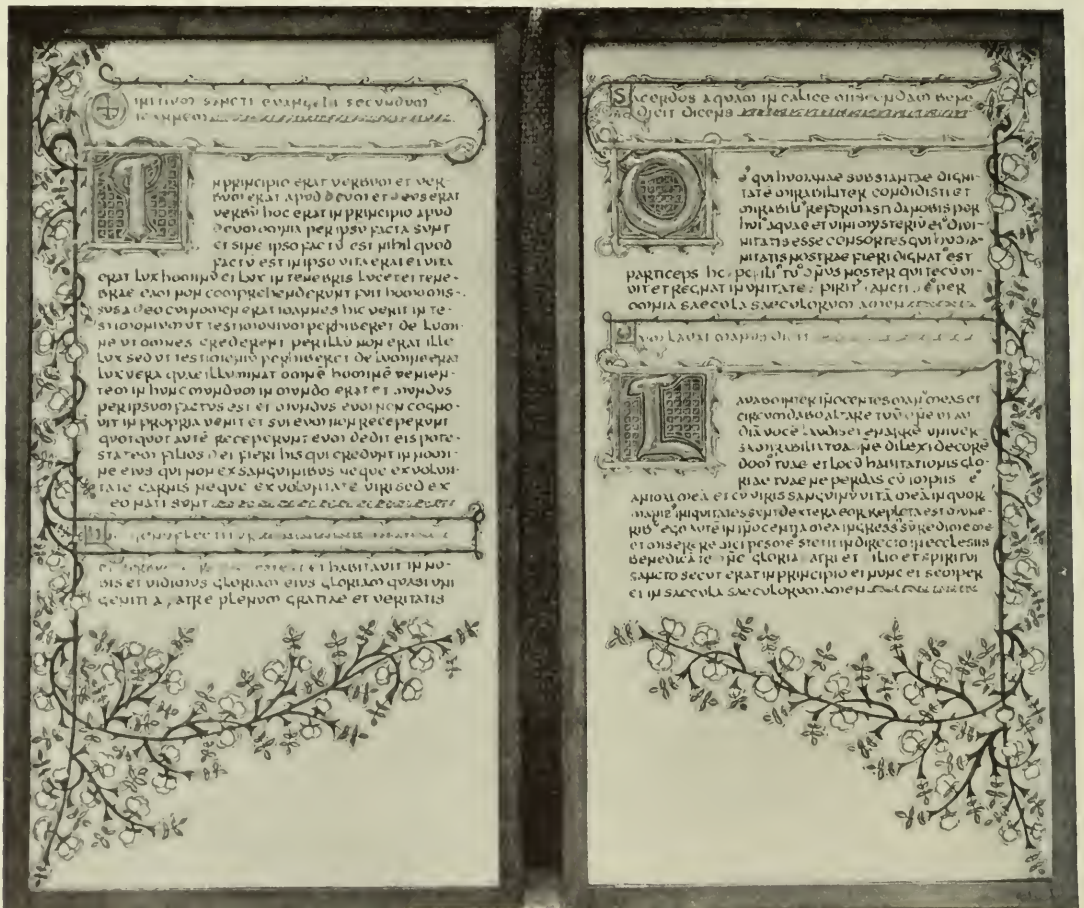 INITIUM SANCTI EVANGELII SECUNDUM
IOANNEM
IN PRINCIPIO ERAT VERBUM ET VER-
BUM ERAT APUD DEUM ET DEUS ERAT
VERBŪ HOC ERAT IN PRINCIPIO APUD
DEUM OMNIA PER IPSŪ FACTA SUNT
ET SINE IPSO FACTŪ EST NIHIL QUOD
FACTŪ EST IN IPSO VITA ERAT ET VITA
ERAT LUX HOMINŪ ET LUX IN TENEBRIS LUCET ET TENE-
BRAE EAM NON COMPREHENDERUNT FUIT HOMO MIS-
SUS A DEO CUI NOMEN ERAT IOANNES HIC VENIT IN TE-
STIMONIUM UT TESTIMONIUM PERHIBERET DE LUMI-
NE UT OMNES CREDERENT PER ILLŪ NON ERAT ILLE
LUX SED UT TESTIMONIŪ PERHIBERET DE LUMINE ERAT
LUX VERA QUAE ILLUMINAT OMNĒ HOMINĒ VENIEN-
TEM IN HUNC MUNDUM IN MUNDO ERAT ET MUNDUS
PER IPSUM FACTUS EST ET MUNDUS EUM NON COGNO-
VIT IN PROPRIA VENIT ET SUI EUM NON RECEPERUNT
QUOTQUOT AUTĒ RECEPERUNT EUM DEDIT EIS POTE-
STATEM FILIOS DEI FIERI HIS QUI CREDUNT IN NOMI-
NE EIUS QUI NON EX SANGUINIBUS NEQUE EX VOLUN-
TATE CARNIS NEQUE EX VOLUNTATE VIRI SED EX
EO NATI SUNT
ET HABITAVIT IN NO-
BIS ET VIDIMUS GLORIAM EIUS GLORIAM QUASI UNI
GENITI A PATRE PLENUM GRATIAE ET VERITATIS
SACERDOS AQUAM IN CALICE MISCENDAM BENE
DICIT DICENS
DEUS QUI HUMANAE SUBSTANTIAE DIGNI-
TATĒ MIRABILITER CONDIDISTI ET
MIRABILI REFORMASTI DA NOBIS PER
HUI AQUAE ET VINI MYSTERIŪ EI DIVI-
NITATIS ESSE CONSORTES QUI HUMA-
NITATIS NOSTRAE FIERI DIGNAT EST
PARTICEPS NOSTER QUI TECŪ VI-
VIT ET REGNAT IN UNITATE PER
OMNIA SAECULA SAECULORUM AMEN
LAVAT MANUS DICIT
LAVABO INTER INOCENTES MAN MEAS ET
CIRCUMDABO ALTARE TUŪ
VOCĒ LAUDIS ET ENARRĒ UNIVER
MIRABILIA TUA DILEXI DECORĒ
DOM TUAE ET LOCŪ HABITATIONIS GLO-
RIAE TUAE NE PERDAS CŪ IMPIIS
ANIMĀ MEĀ ET CŪ VIRIS SANGUINŪ VITĀ MEĀ IN QUOR
MANIB INIQUITATES SUNT DEXTERA EOR REPLETA EST MUNE-
RIB EGO AUTĒ IN INOCENTIA MEA INGRESS SŪ REDIME ME
ET MISERERE MEI PES ME STETIT IN DIRECTO IN ECCLESIIS
BENEDICĀ TE GLORIA PATRI ET FILIO ET SPIRITUI
SANCTO SICUT ERAT IN PRINCIPIO ET NUNC ET SEMPER
ET IN SAECULA SAECULORUM AMEN